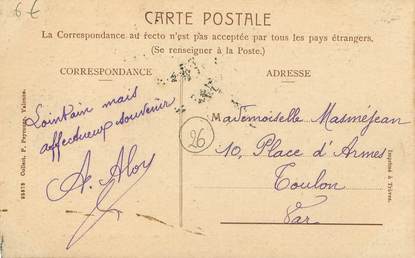 6€
CARTE POSTALE
La Correspondance au recto n'est pas acceptée par tous les pays étrangers.
(Se renseigner à la Poste.)
CORRESPONDANCE
ADRESSE
Lointain mais
affectueux souvenir
A. Aloy
26
Mademoiselle Masméjean
10, Place d'Armes
Toulon
Var
Collect. F. Peyrouze, Valence.
Imprimé à Trèves.